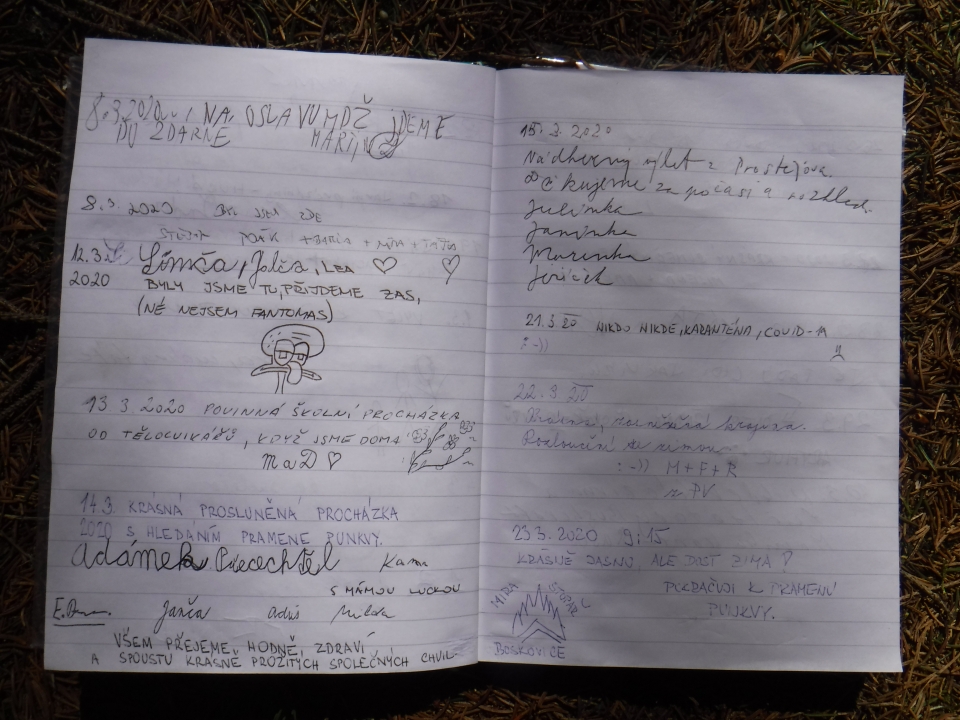 8.3.2020 I NA OSLAVU MDŽ JDEME
DO ZDARNÉ
8.3 2020 BYL JSEM ZDE
12.3
2020
Simča, Jolča, LEA
BYLY JSME TU, PŘIJDEME ZAS,
(NÉ NEJSEM FANTOMAS)
13 3 2020 POVINNÁ ŠKOLNÍ PROCHÁZKA
OD TĚLOCVIKÁŘŮ, KDYŽ JSME DOMA
MaD
14.3. KRÁSNÁ PROSLUNĚNÁ PROCHÁZKA
2020 S HLEDÁNÍM PRAMENE PUNKVY.
Adámek
S MÁMOU LUCKOU
Janča Milda
VŠEM PŘEJEME, HODNĚ, ZDRAVÍ
A SPOUSTU KRÁSNĚ PROŽITÝCH SPOLEČNÝCH CHVIL
15.3.2020
Nádherný výlet z Prostějova.
Děkujeme za počasí a rozhled.
Julinka
Janinka
Marenka
Jiříček
21.3.20 NIKDO NIKDE, KARANTÉNA, COVID-19
:-))
22.3 20
Rozloučení se zimou
:-)) M+F+R
z PV
23.3.2020 9:15
KRÁSNĚ JASNO, ALE DOST ZIMA!
POKRAČUJI K PRAMENU
PUNKVY.
MÍRA
BOSKOVICE